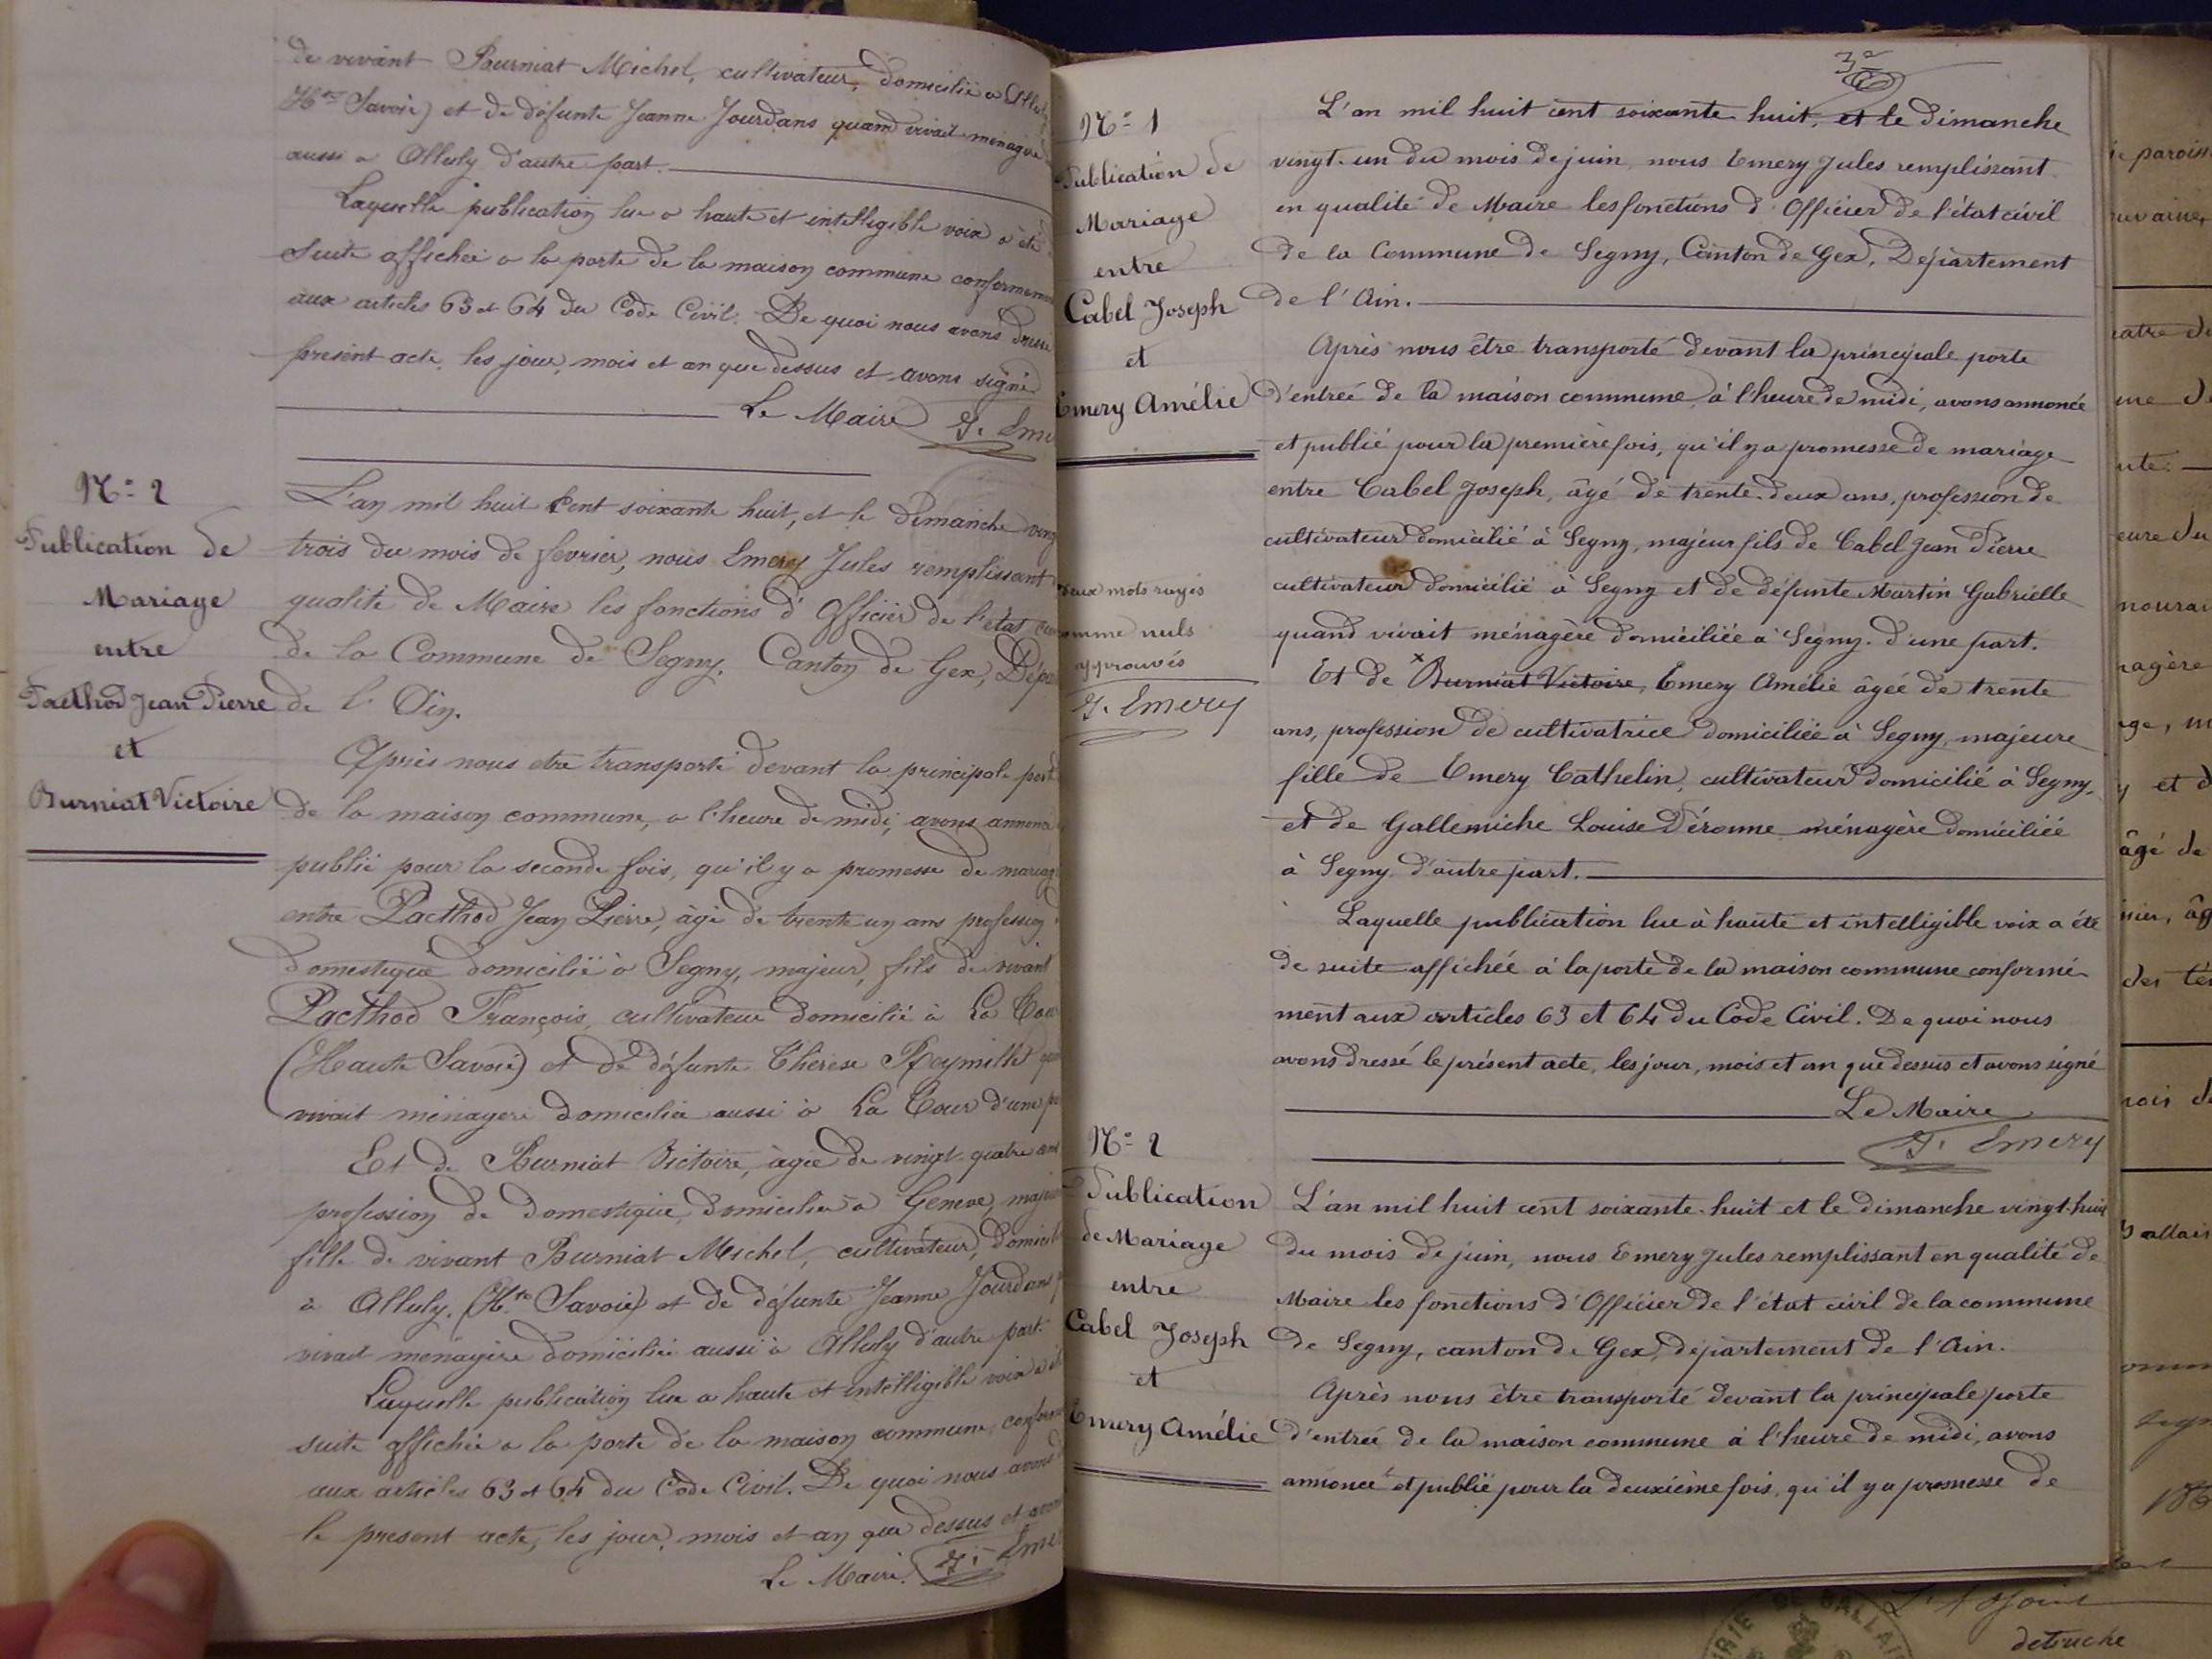 de vivant Burniat Michel, cultivateur, domicilié a
(Hte Savoie) et de défunte Jeanne Jourdans quand vivait menagère
aussi a Alluly d'autre part.
Laquelle publication lue a haute et intelligible voix a été
suite affichée a la porte de la maison commune conformem
aux articles 63 et 64 du Code Civil. De quoi nous avons dressé
présent acte, les jour, mois et an que dessus et avons signé
Le Maire J. Eme
N° 2
Publication de
Mariage
entre
Paethod Jean Pierre
et
Burniat Victoire
L'an mil huit Cent soixante huit, et le Dimanche ving
trois du mois de fevrier, nous Emery Jules remplissant
qualité de Maire les fonctions d'Officier de l'état
de la Commune de Segny, Canton de Gex, Dép
de l'Ain.
Après nous etre transporté devant la principale port
de la maison commune, a l'heure de midi, avons annoncé
publié pour la seconde fois, qu'il y a promesse de mariag
entre Paethod Jean Pierre, âgé de trente un ans profession
domestique domicilié à Segny, majeur, fils de vivant
Paethod François, cultivateur domicilié à La
(Haute Savoie) et de défunte Thérèse Reymillet
vivait ménagère domiciliée aussi à La Tour d'une
Et de Burniat Victoire, âgée de vingt quatre ans
profession de domestique, domiciliée à Genève, maj
fille de vivant Burniat Michel, cultivateur, domici
à Alluly, (Hte Savoie) et de défunte Jeanne Jourdans
vivait ménagère domiciliée aussi à Alluly d'autre part.
Laquelle publication lue a haute et intelligible voix a
suite affichée a la porte de la maison commune, conform
aux articles 63 et 64 du Code Civil. De quoi nous avons
le présent acte, les jour, mois et an que dessus et avon
Le Maire. J. Eme
3e
N° 1
Publication de
Mariage
entre
Cabel Joseph
et
Emery Amélie
L'an mil huit cent soixante huit, et le dimanche
vingt-un du mois de juin, nous Emery Jules remplissant
en qualité de Maire les fonctions d'Officier de l'état civil
de la Commune de Segny, Canton de Gex, Département
de l'Ain.
Après nous être transporté devant la principale porte
d'entrée de la maison commune, à l'heure de midi, avons annoncé
et publié pour la première fois, qu'il y a promesse de mariage
entre Cabel Joseph, âgé de trente-deux ans, profession de
cultivateur domicilié à Segny, majeur fils de Cabel Jean Pierre
cultivateur domicilié à Segny et de défunte Martin Gabrielle
quand vivait ménagère domiciliée à Segny. d'une part.
Et de x Burniat Victoire, Emery Amélie âgée de trente
ans, profession de cultivatrice domiciliée à Segny, majeure
fille de Emery Cathelin, cultivateur domicilié à Segny,
et de Gallemiche Louise Péronne ménagère domiciliée
à Segny. d'autre part.
deux mots rayés
comme nuls
approuvés
J. Emery
Laquelle publication lue à haute et intelligible voix a été
de suite affichée à la porte de la maison commune conformé-
ment aux articles 63 et 64 du Code Civil. De quoi nous
avons dressé le présent acte, les jour, mois et an que dessus et avons signé
Le Maire
J. Emery
N° 2
Publication
de Mariage
entre
Cabel Joseph
et
Emery Amélie
L'an mil huit cent soixante-huit et le dimanche vingt-huit
du mois de juin, nous Emery Jules remplissant en qualité de
Maire les fonctions d'Officier de l'état civil de la commune
de Segny, canton de Gex, département de l'Ain.
Après nous être transporté devant la principale porte
d'entrée de la maison commune à l'heure de midi, avons
annoncé et publié pour la deuxième fois, qu'il y a promesse de